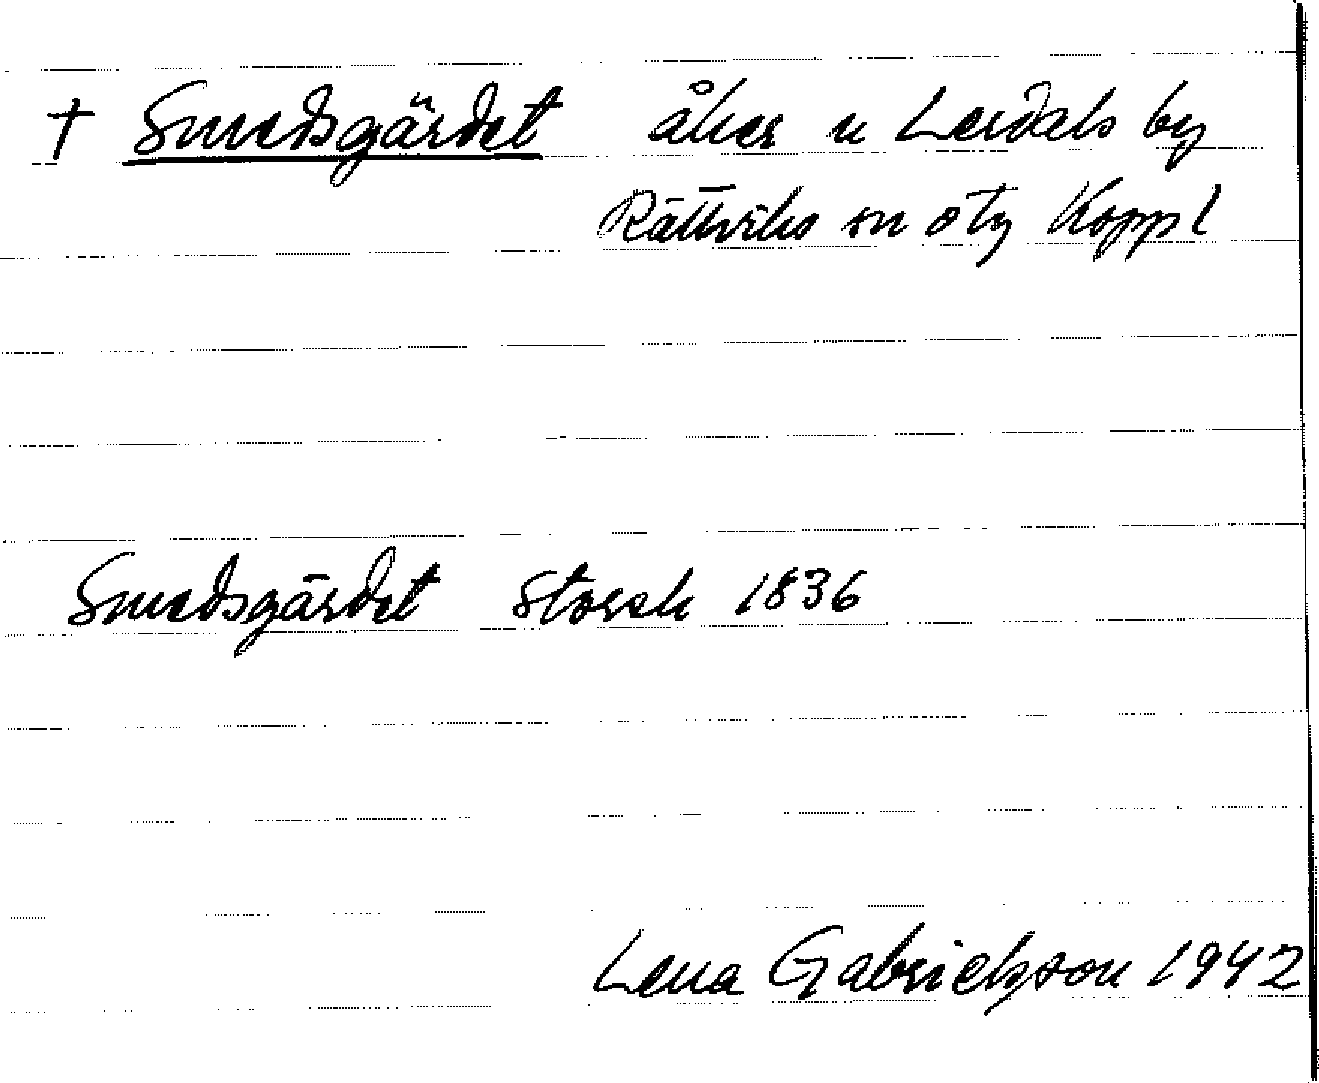 † Smedsgärdet åker u Lerdals by
Rättviks sn o tg Koppl
Smedsgärdet Storsk 1836
Lena Gabrielsson 1942